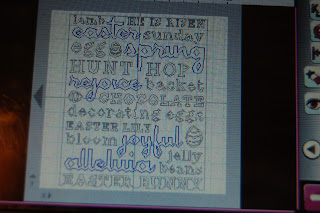 lamb HE IS RISEN
easter sunday
eggs spring
HUNT HOP
rejoice basket
CHOCOLATE
decorating eggs
EASTER LILY
bloom joyful
alleluia jelly
beans
EASTER BUNNY